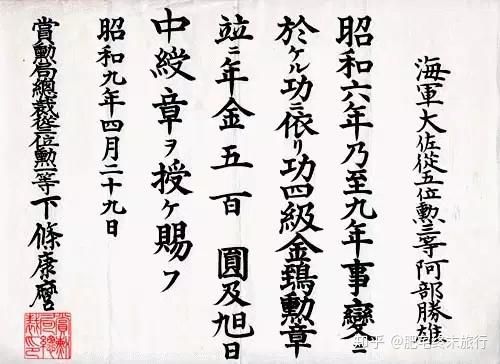 海軍大佐從五位勲三等阿部勝雄
昭和六年乃至九年事變ニ
於ケル功ニ依リ功四級金鵄勲章
竝ニ年金五百圓及旭日
中綬章ヲ授ケ賜フ
昭和九年四月二十九日
賞勲局總裁從三位勲一等下條康麿
知乎 @肥宅终末旅行